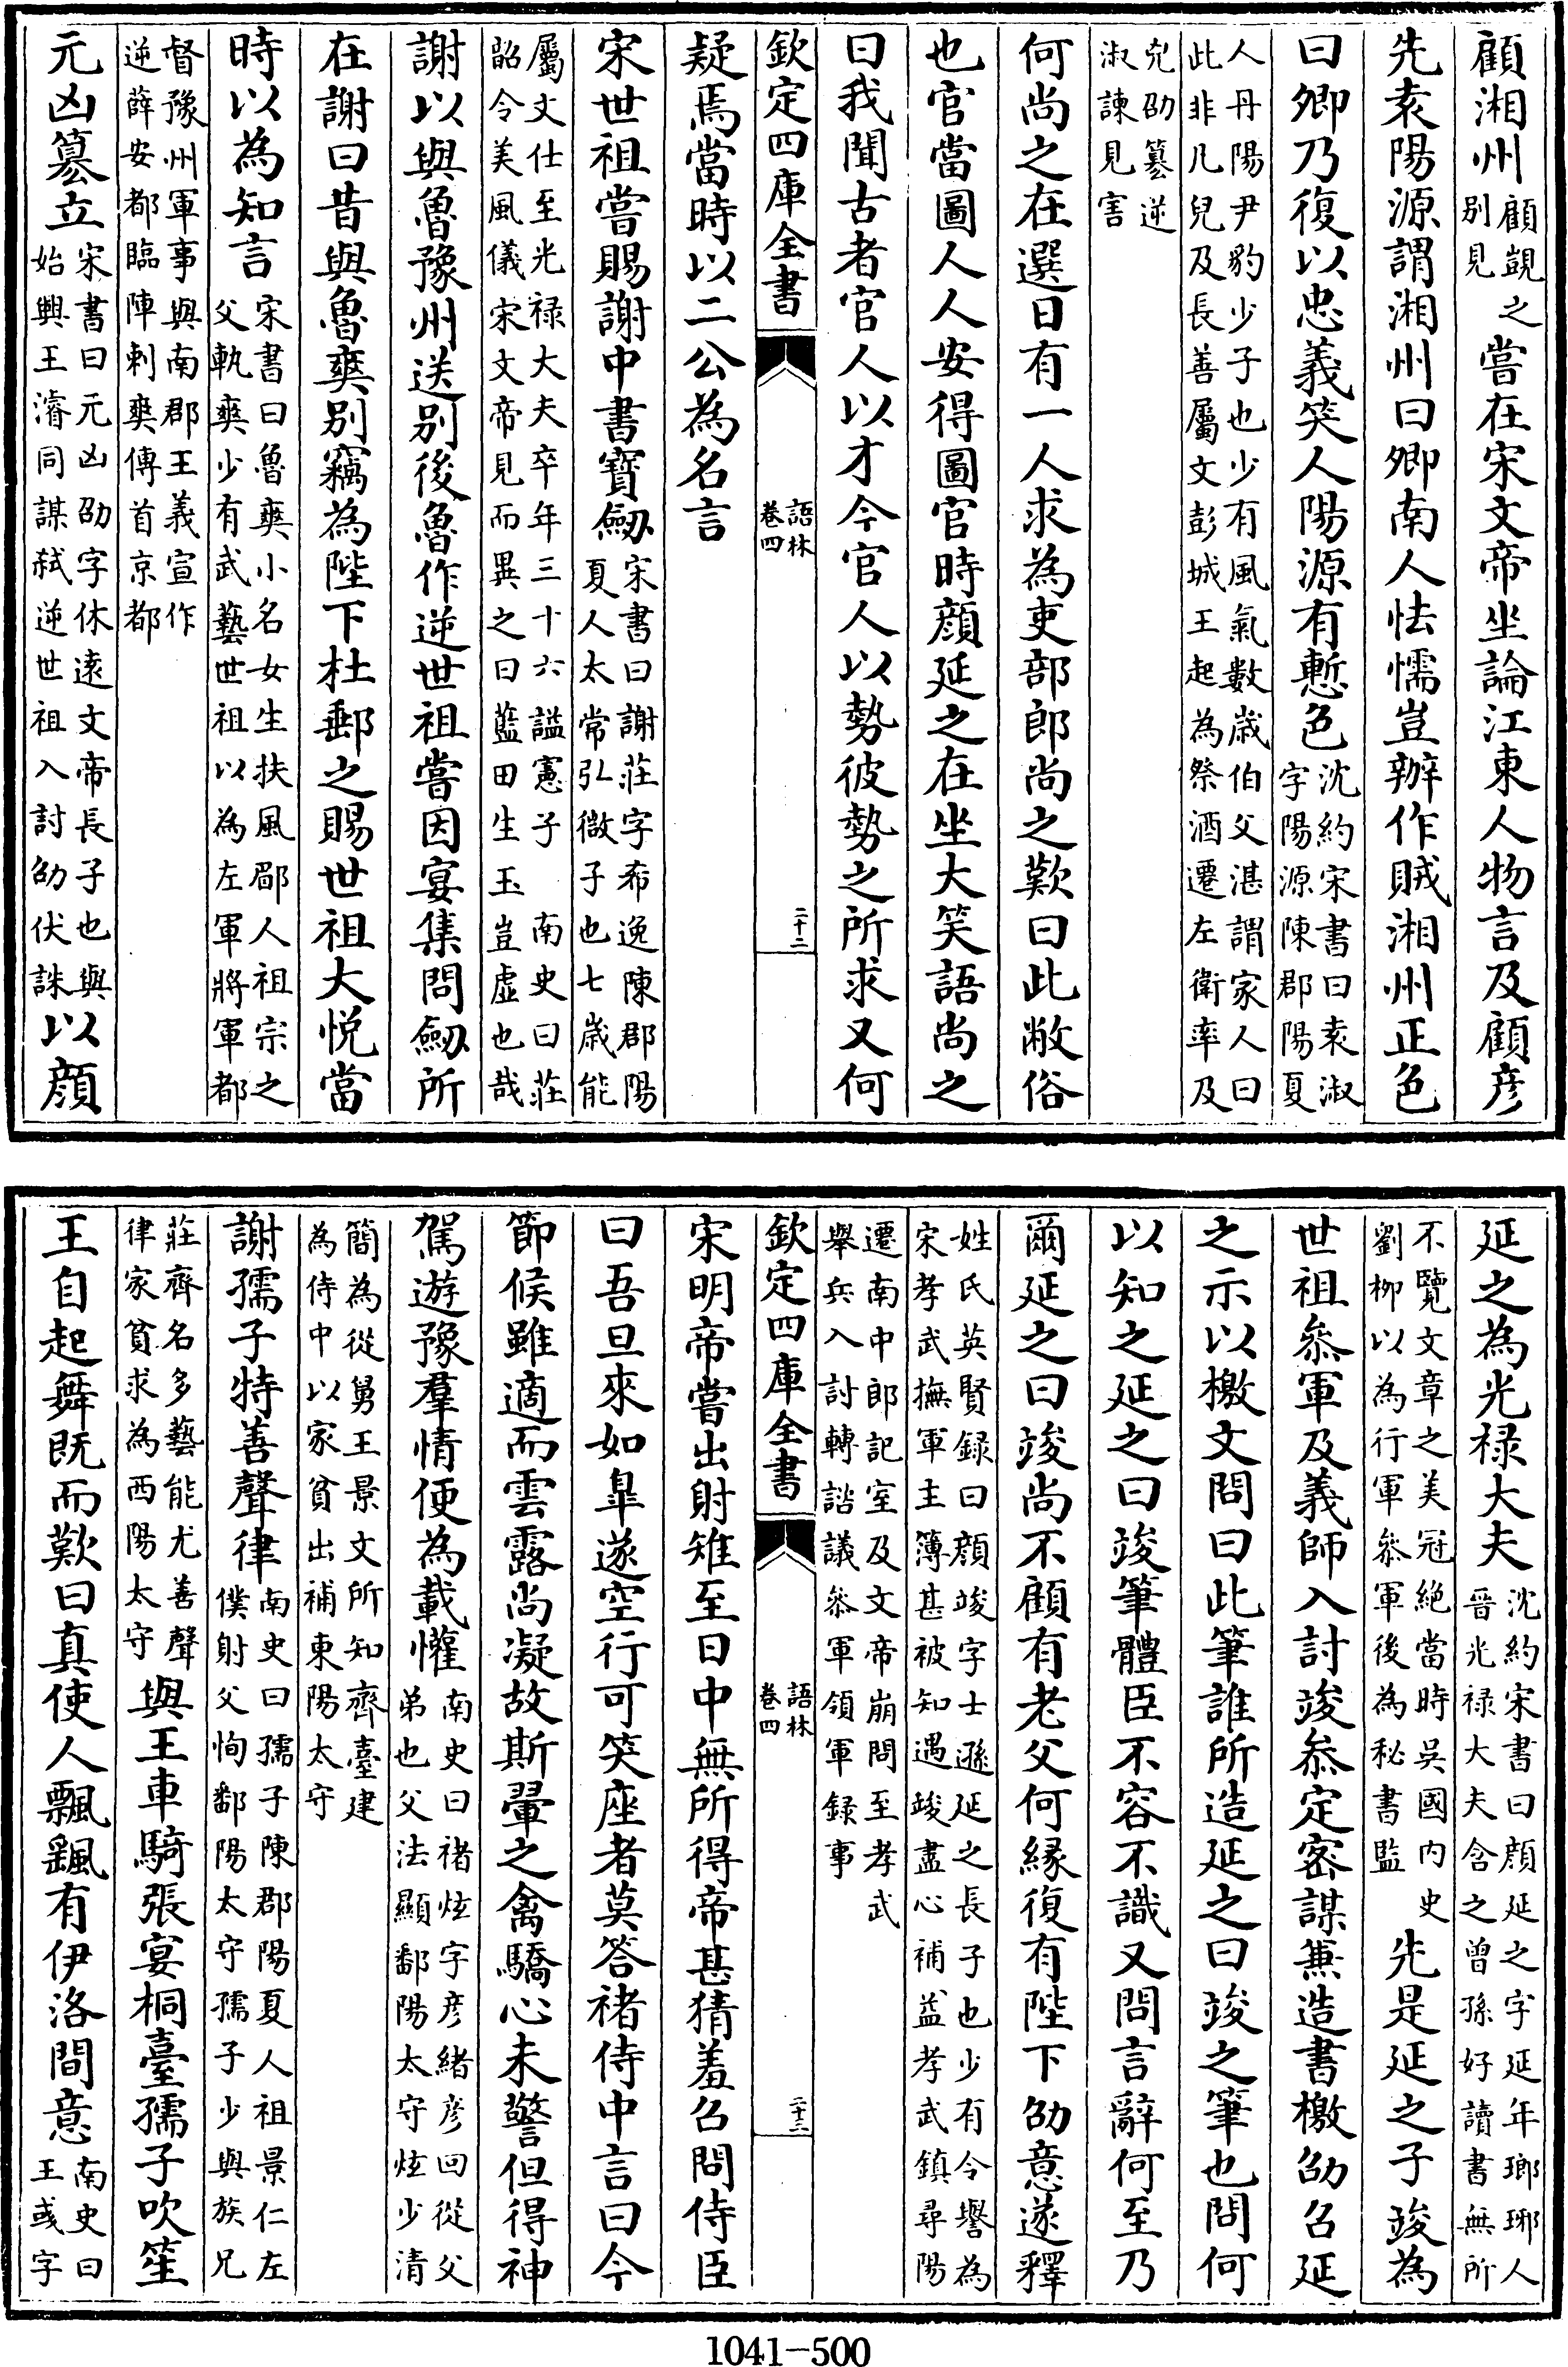 顧湘州顧覬之別見嘗在宋文帝坐論江東人物言及顧彦
先袁陽源謂湘州曰卿南人怯懦豈辦作賊湘州正色
曰卿乃復以忠義笑人陽源有慙色沈約宋書曰袁淑字陽源陳郡陽夏
人丹陽尹豹少子也少有風氣數歳伯父湛謂家人曰此非凡兒及長善屬文彭城王起為祭酒遷左衛率及
兇劭簒逆淑諫見害
何尚之在選日有一人求為吏部郎尚之歎曰此敝俗
也官當圖人人安得圖官時顔延之在坐大笑語尚之
曰我聞古者官人以才今官人以勢彼勢之所求又何
欽定四庫全書 語林卷四 二十二
疑焉當時以二公為名言
宋世祖嘗賜謝中書寳劒宋書曰謝莊字希逸陳郡陽夏人太常弘微子也七歳能
屬文仕至光禄大夫卒年三十六諡憲子南史曰莊韶令美風儀宋文帝見而異之曰藍田生玉豈虚也哉
謝以與魯豫州送别後魯作逆世祖嘗因宴集問劒所
在謝曰昔與魯爽别竊為陛下杜郵之賜世祖大悦當
時以為知言宋書曰魯爽小名女生扶風郿人祖宗之父軌爽少有武藝世祖以為左軍將軍都
督豫州軍事與南郡王義宣作逆薛安都臨陣刺爽傳首京都
元凶簒立宋書曰元凶劭字休逺文帝長子也與始興王濬同謀弑逆世祖入討劭伏誅以顔
延之為光禄大夫沈約宋書曰顔延之字延年瑯琊人晉光禄大夫含之曾孫好讀書無所
不覽文章之美冠絶當時吳國内史劉柳以為行軍叅軍後為秘書監先是延之子竣為
世祖叅軍及義師入討竣叅定密謀兼造書檄劭召延
之示以檄文問曰此筆誰所造延之曰竣之筆也問何
以知之延之曰竣筆體臣不容不識又問言辭何至乃
爾延之曰竣尚不顧有老父何縁復有陛下劭意遂釋
姓氏英賢録曰顔竣字士遜延之長子也少有令譽為宋孝武撫軍主簿甚被知遇竣盡心補益孝武鎮尋陽
遷南中郎記室及文帝崩問至孝武舉兵入討轉諮議叅軍領軍録事
欽定四庫全書 語林卷四 二十三
宋明帝嘗出射雉至日中無所得帝甚猜羞召問侍臣
曰吾旦來如臯遂空行可笑座者莫答禇侍中言曰今
節候雖適而雲露尚凝故斯翬之禽驕心未警但得神
駕遊豫羣情便為載懽南史曰禇炫字彦緒彦回從父弟也父法顯鄱陽太守炫少清
簡為從舅王景文所知齊臺建為侍中以家貧出補東陽太守
謝孺子特善聲律南史曰孺子陳郡陽夏人祖景仁左僕射父恂鄱陽太守孺子少與族兄
莊齊名多藝能尤善聲律家貧求為西陽太守與王車騎張宴桐臺孺子吹笙
王自起舞既而歎曰真使人飄飖有伊洛間意南史曰王彧字
1041-500